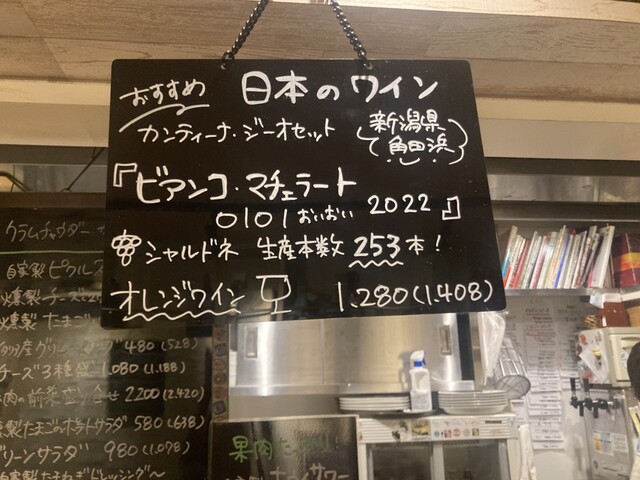 おすすめ 日本のワイン
カンティーナ・ジーオセット
新潟県
角田浜
『ビアンコ・マチェラート
0101 おいおい 2022』
シャルドネ 生産本数 253本!
オレンジワイン 1,280(1,408)
クラムチャウダー
自家製ピクルス
燻製チーズ
燻製たまご
480(528)
チーズ3種盛 1,080(1,188)
肉の前菜盛り合せ 2,200(2,420)
燻製たまごのポテトサラダ 580(638)
グリーンサラダ 980(1,078)
自家製たまねぎドレッシング〜
果肉
サワー